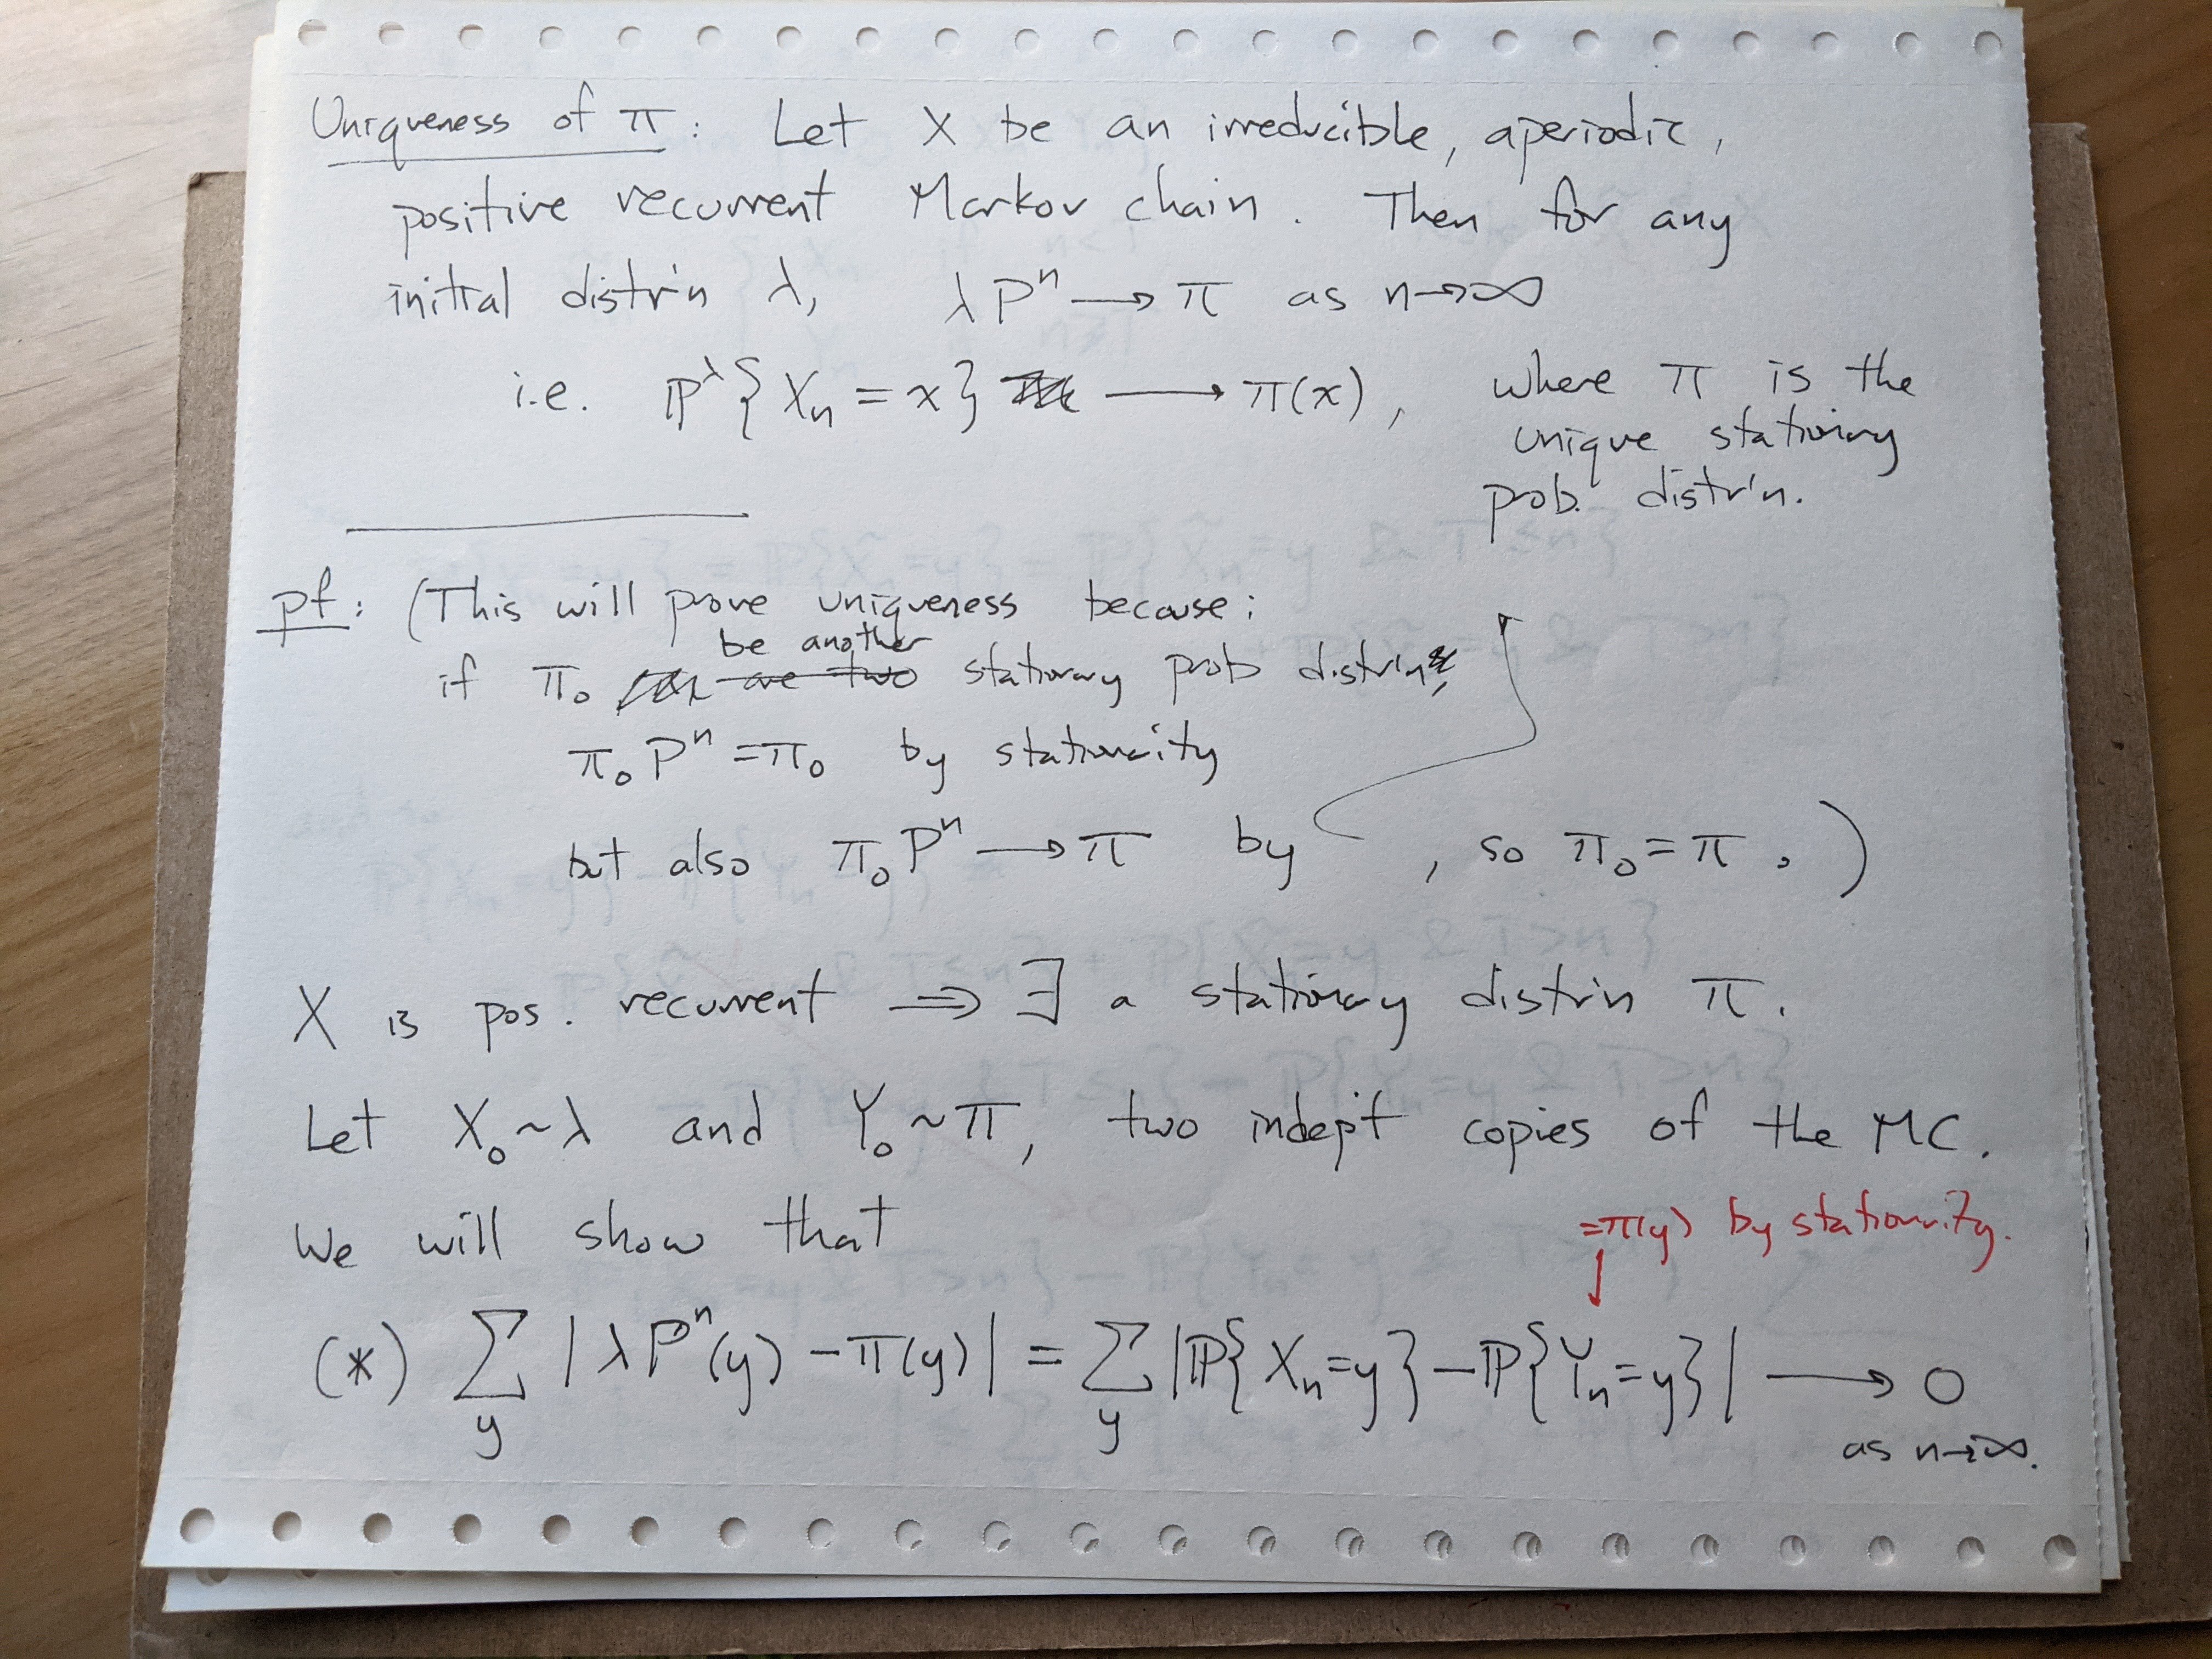 Uniqueness of π: Let X be an irreducible, aperiodic,
positive recurrent Markov chain. Then for any
initial distr'n λ, λPⁿ → π as n→∞
i.e. ℙ^λ{Xₙ = x} → π(x), where π is the
unique stationary
prob. distr'n.
pf: (This will prove uniqueness because:
be another
if π₀ are two stationary prob distr'n,
π₀Pⁿ = π₀ by stationarity
but also π₀Pⁿ → π by , so π₀ = π.)
X is pos. recurrent ⇒ ∃ a stationary distr'n π.
Let X₀ ~ λ and Y₀ ~ π, two indep't copies of the MC.
We will show that
=π(y) by stationarity.
↓
(*) Σ_y |λPⁿ(y) − π(y)| = Σ_y |ℙ{Xₙ=y} − ℙ{Yₙ=y}| → 0
as n→∞.